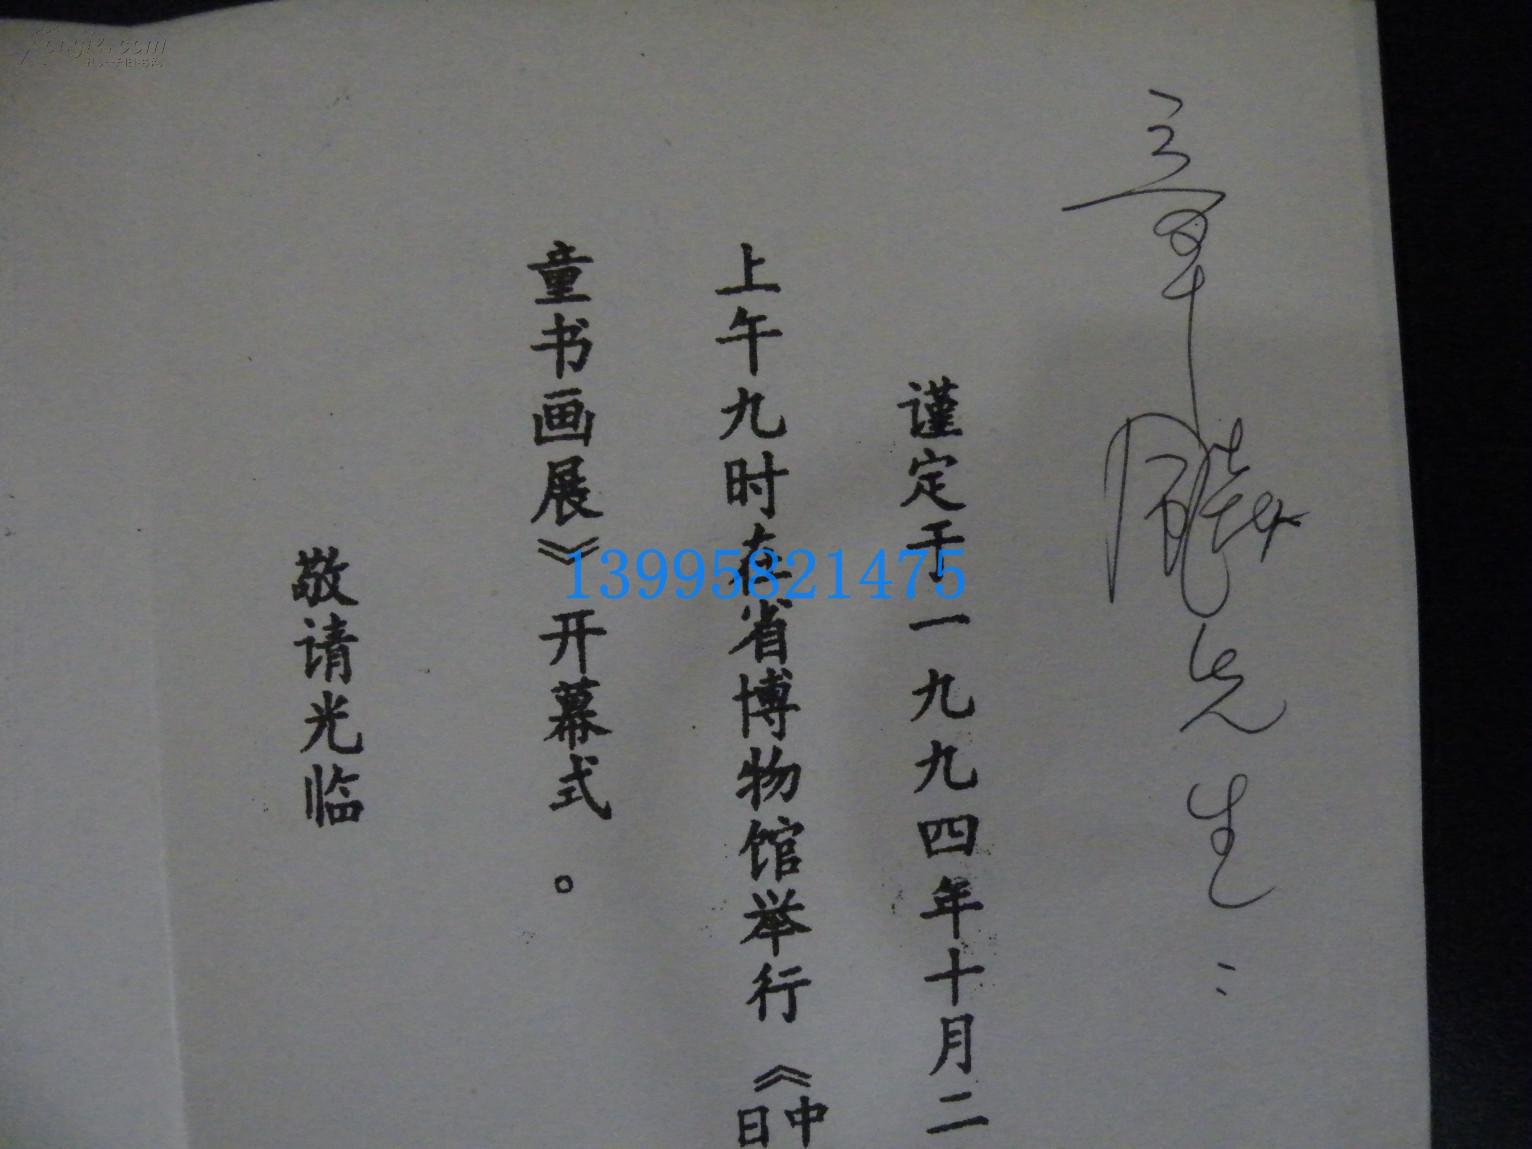 章飚先生：
谨定于一九九四年十月二
上午九时在省博物馆举行《中日
童书画展》开幕式。
敬请光临
13995821475